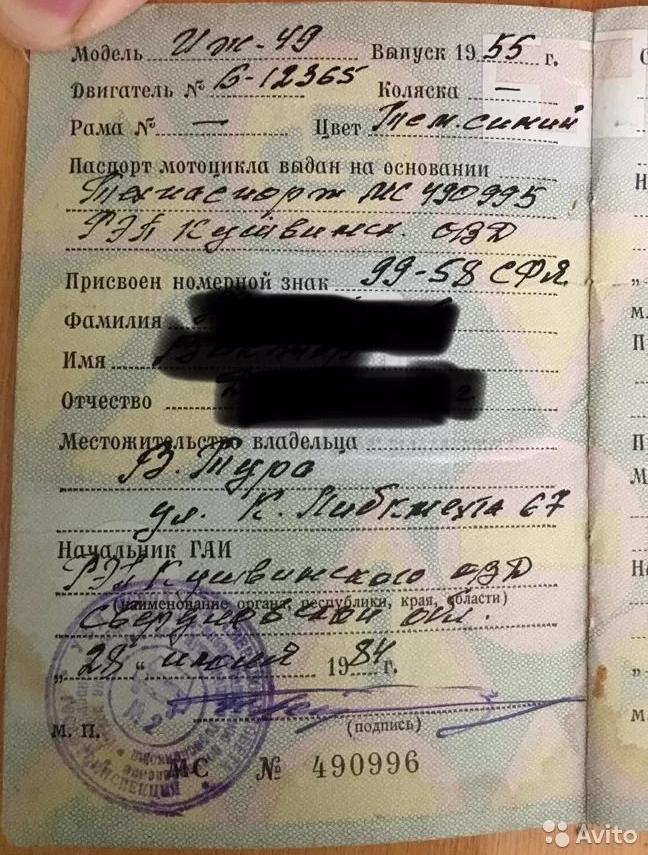 Модель Иж-49 Выпуск 1955 г.
Двигатель № Б-12365 Коляска —
Рама № — Цвет Тем. синий
Паспорт мотоцикла выдан на основании
Техпаспорт МС 490995
РЭП Кушвинск ОВД
Присвоен номерной знак 99-58 СФЯ
Фамилия
Имя
Отчество
Местожительство владельца
В. Тура
ул. К. Либкнехта 67
Начальник ГАИ
РЭП Кушвинского ОВД
(наименование органа, республики, края, области)
Свердловской обл.
„28“ июня 1984 г.
(подпись)
М. П.
МС № 490996
Avito